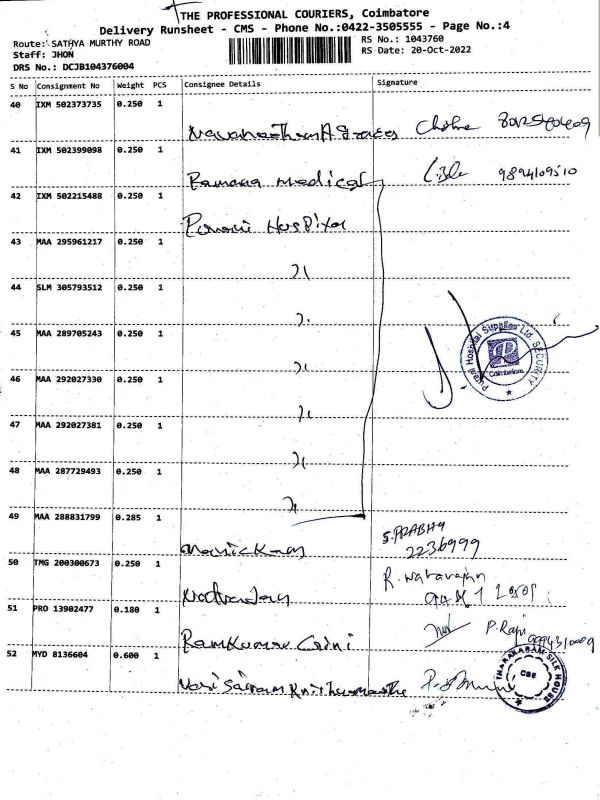 THE PROFESSIONAL COURIERS, Coimbatore
Delivery Runsheet - CMS - Phone No.:0422-3505555 - Page No.:4
Route: SATHYA MURTHY ROAD
Staff: JHON
DRS No.: DCJB104376004
RS No.: 1043760
RS Date: 20-Oct-2022
S No Consignment No Weight PCS Consignee Details Signature
40 IXM 502373735 0.250 1
41 IXM 502399098 0.250 1
Ramana medical 9894109510
42 IXM 502215488 0.250 1
Hospital
43 MAA 295961217 0.250 1
44 SLM 305793512 0.250 1
45 MAA 289705243 0.250 1
Purani Hospital Supplies Ltd. SECURITY
Coimbatore
46 MAA 292027330 0.250 1
47 MAA 292027381 0.250 1
48 MAA 287729493 0.250 1
49 MAA 288831799 0.285 1
S. PRABHA
2236999
Manickam
50 TMG 200300673 0.250 1
R. Natarajan
Natarajan
51 PRO 13902477 0.180 1
P. Raju
RamKumar
52 MYD 8136604 0.600 1
THARAKARAM SILK HOUSE
CBE